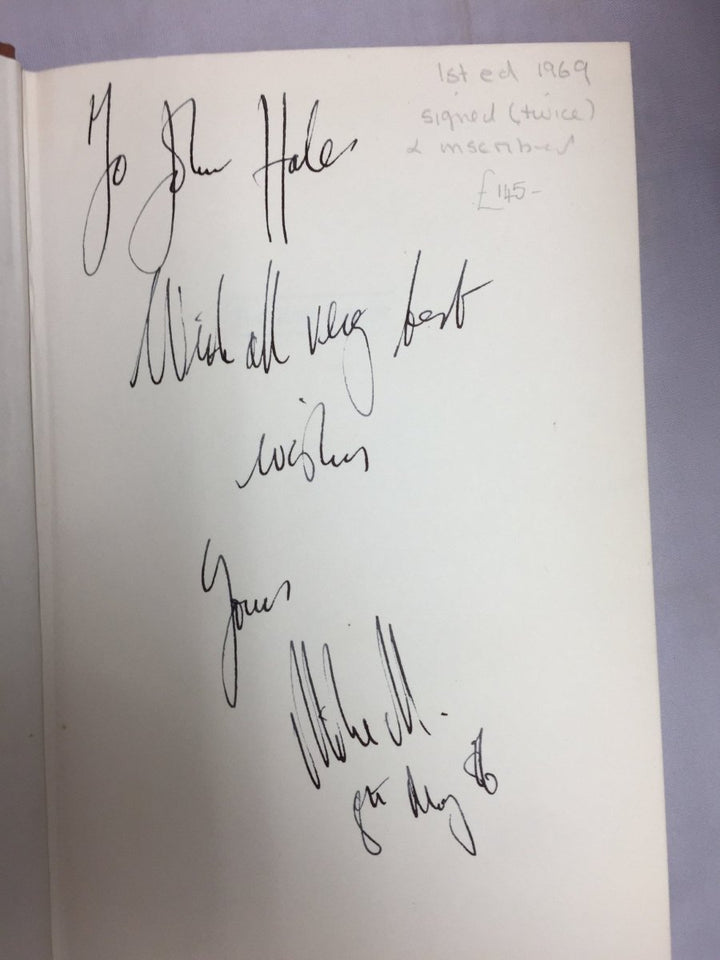 1st ed 1969
signed (twice)
& inscribed
£145-
To John Hales
With all very best
wishes
Yours
Mike M.
8th May